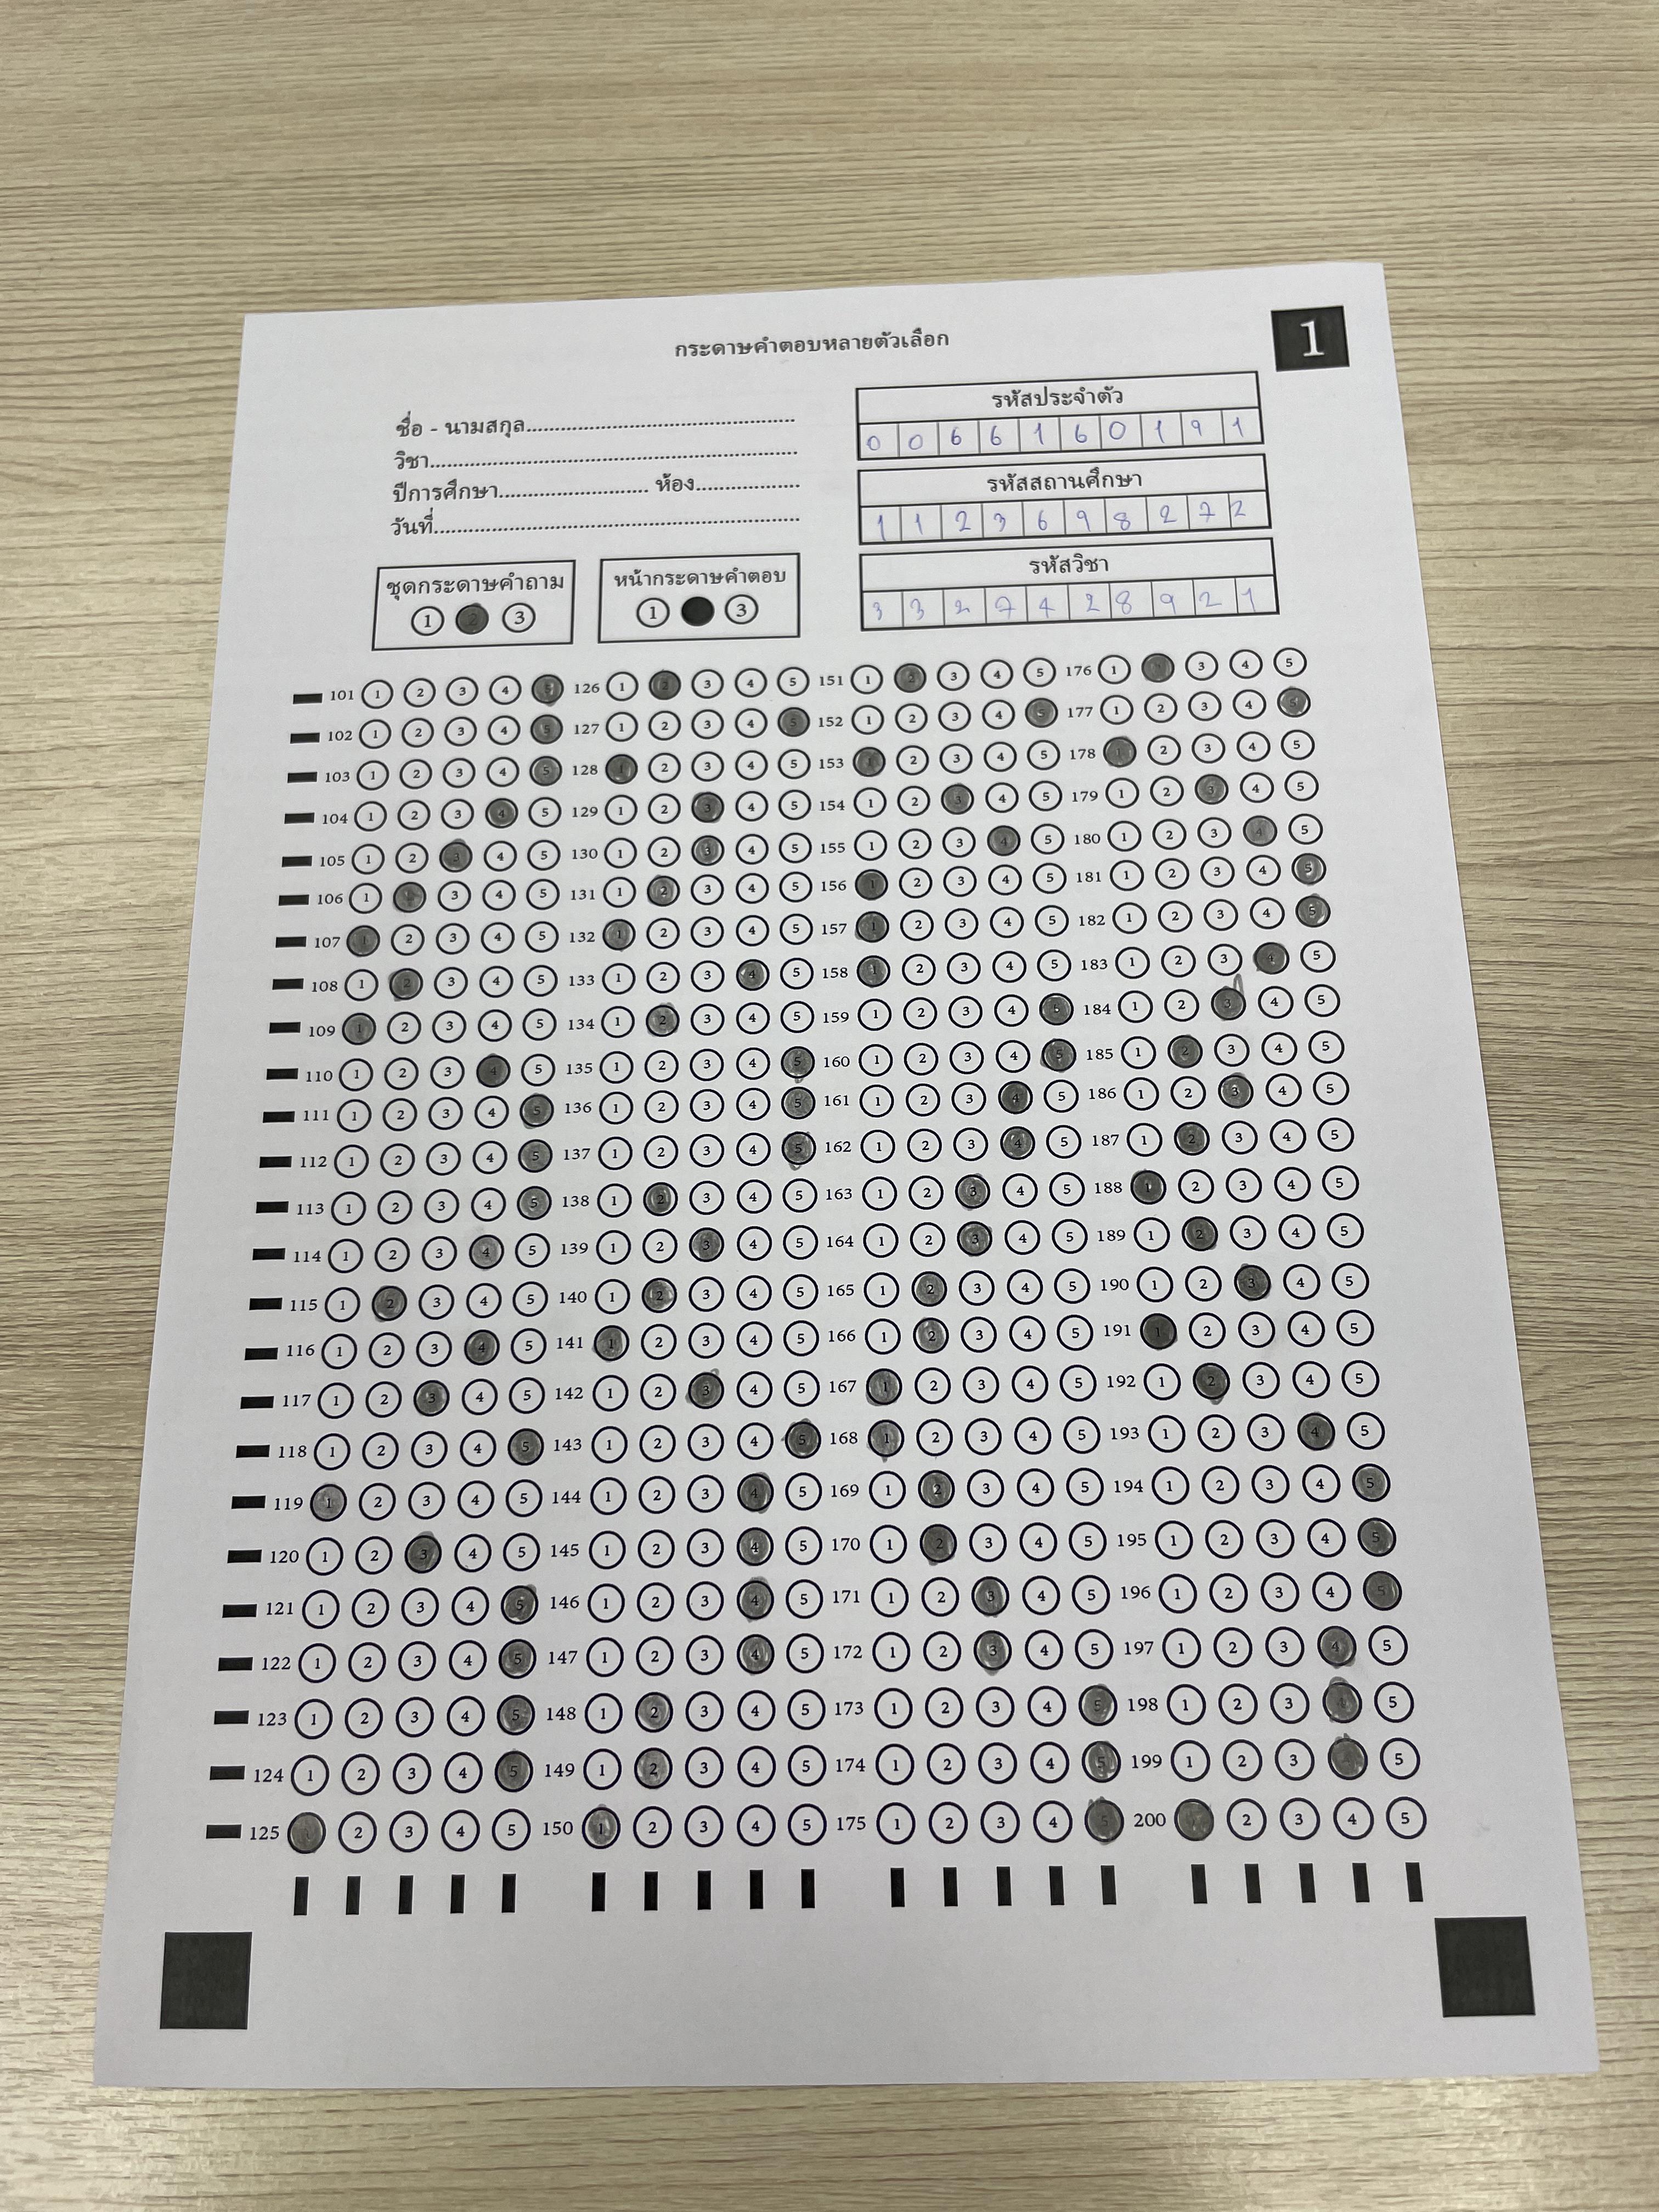 1
กระดาษคำตอบหลายตัวเลือก
ชื่อ - นามสกุล
วิชา
ปีการศึกษา ห้อง
วันที่
รหัสประจำตัว
0 0 6 6 1 6 0 1 9 1
รหัสสถานศึกษา
1 1 2 3 6 9 8 2 7 2
รหัสวิชา
3 3 2 7 4 2 8 9 2 1
ชุดกระดาษคำถาม
1 2 3
หน้ากระดาษคำตอบ
1 3
101 1 2 3 4 5 126 1 2 3 4 5 151 1 2 3 4 5 176 1 3 4 5
102 1 2 3 4 5 127 1 2 3 4 5 152 1 2 3 4 5 177 1 2 3 4 5
103 1 2 3 4 5 128 1 2 3 4 5 153 1 2 3 4 5 178 1 2 3 4 5
104 1 2 3 4 5 129 1 2 3 4 5 154 1 2 3 4 5 179 1 2 3 4 5
105 1 2 3 4 5 130 1 2 3 4 5 155 1 2 3 4 5 180 1 2 3 4 5
106 1 3 4 5 131 1 2 3 4 5 156 1 2 3 4 5 181 1 2 3 4 5
107 1 2 3 4 5 132 1 2 3 4 5 157 1 2 3 4 5 182 1 2 3 4 5
108 1 2 3 4 5 133 1 2 3 4 5 158 1 2 3 4 5 183 1 2 3 4 5
109 1 2 3 4 5 134 1 2 3 4 5 159 1 2 3 4 5 184 1 2 3 4 5
110 1 2 3 4 5 135 1 2 3 4 5 160 1 2 3 4 5 185 1 2 3 4 5
111 1 2 3 4 5 136 1 2 3 4 5 161 1 2 3 4 5 186 1 2 3 4 5
112 1 2 3 4 5 137 1 2 3 4 5 162 1 2 3 4 5 187 1 2 3 4 5
113 1 2 3 4 5 138 1 2 3 4 5 163 1 2 3 4 5 188 1 2 3 4 5
114 1 2 3 4 5 139 1 2 3 4 5 164 1 2 3 4 5 189 1 2 3 4 5
115 1 2 3 4 5 140 1 2 3 4 5 165 1 2 3 4 5 190 1 2 3 4 5
116 1 2 3 4 5 141 1 2 3 4 5 166 1 2 3 4 5 191 1 2 3 4 5
117 1 2 3 4 5 142 1 2 3 4 5 167 1 2 3 4 5 192 1 2 3 4 5
118 1 2 3 4 5 143 1 2 3 4 5 168 1 2 3 4 5 193 1 2 3 4 5
119 1 2 3 4 5 144 1 2 3 4 5 169 1 2 3 4 5 194 1 2 3 4 5
120 1 2 3 4 5 145 1 2 3 4 5 170 1 2 3 4 5 195 1 2 3 4 5
121 1 2 3 4 5 146 1 2 3 4 5 171 1 2 3 4 5 196 1 2 3 4 5
122 1 2 3 4 5 147 1 2 3 4 5 172 1 2 3 4 5 197 1 2 3 4 5
123 1 2 3 4 5 148 1 2 3 4 5 173 1 2 3 4 5 198 1 2 3 4 5
124 1 2 3 4 5 149 1 2 3 4 5 174 1 2 3 4 5 199 1 2 3 4 5
125 2 3 4 5 150 1 2 3 4 5 175 1 2 3 4 5 200 2 3 4 5